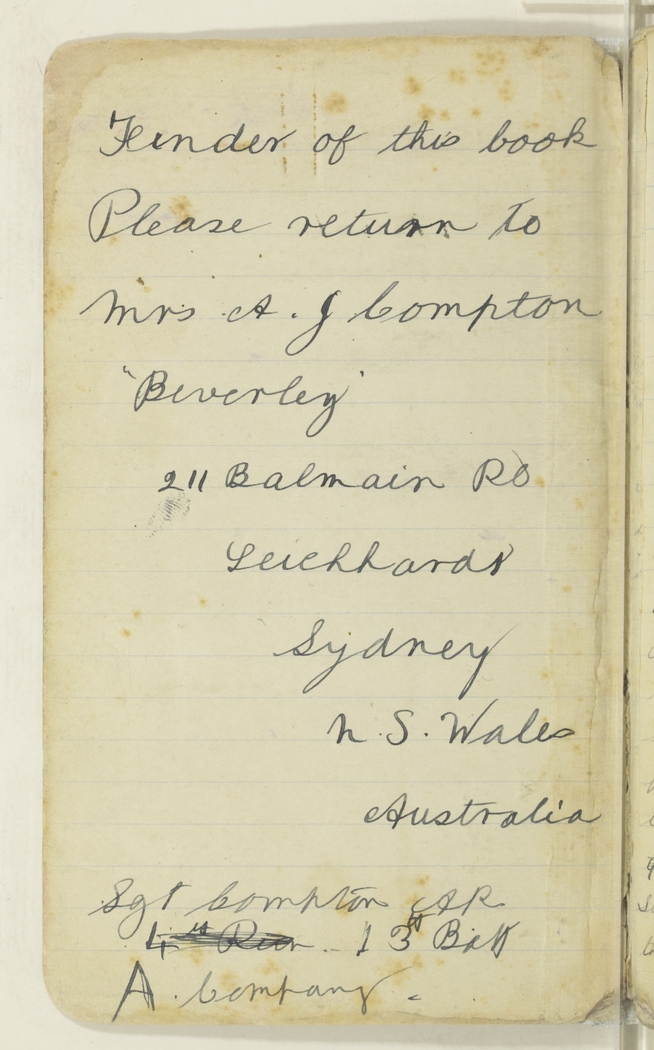 Finder of this book
Please return to
Mrs A. J Compton
"Beverley"
211 Balmain Rd
Leichhardt
Sydney
N. S. Wales
Australia
Sgt Compton AR
4th 13th Batt
A. Company.